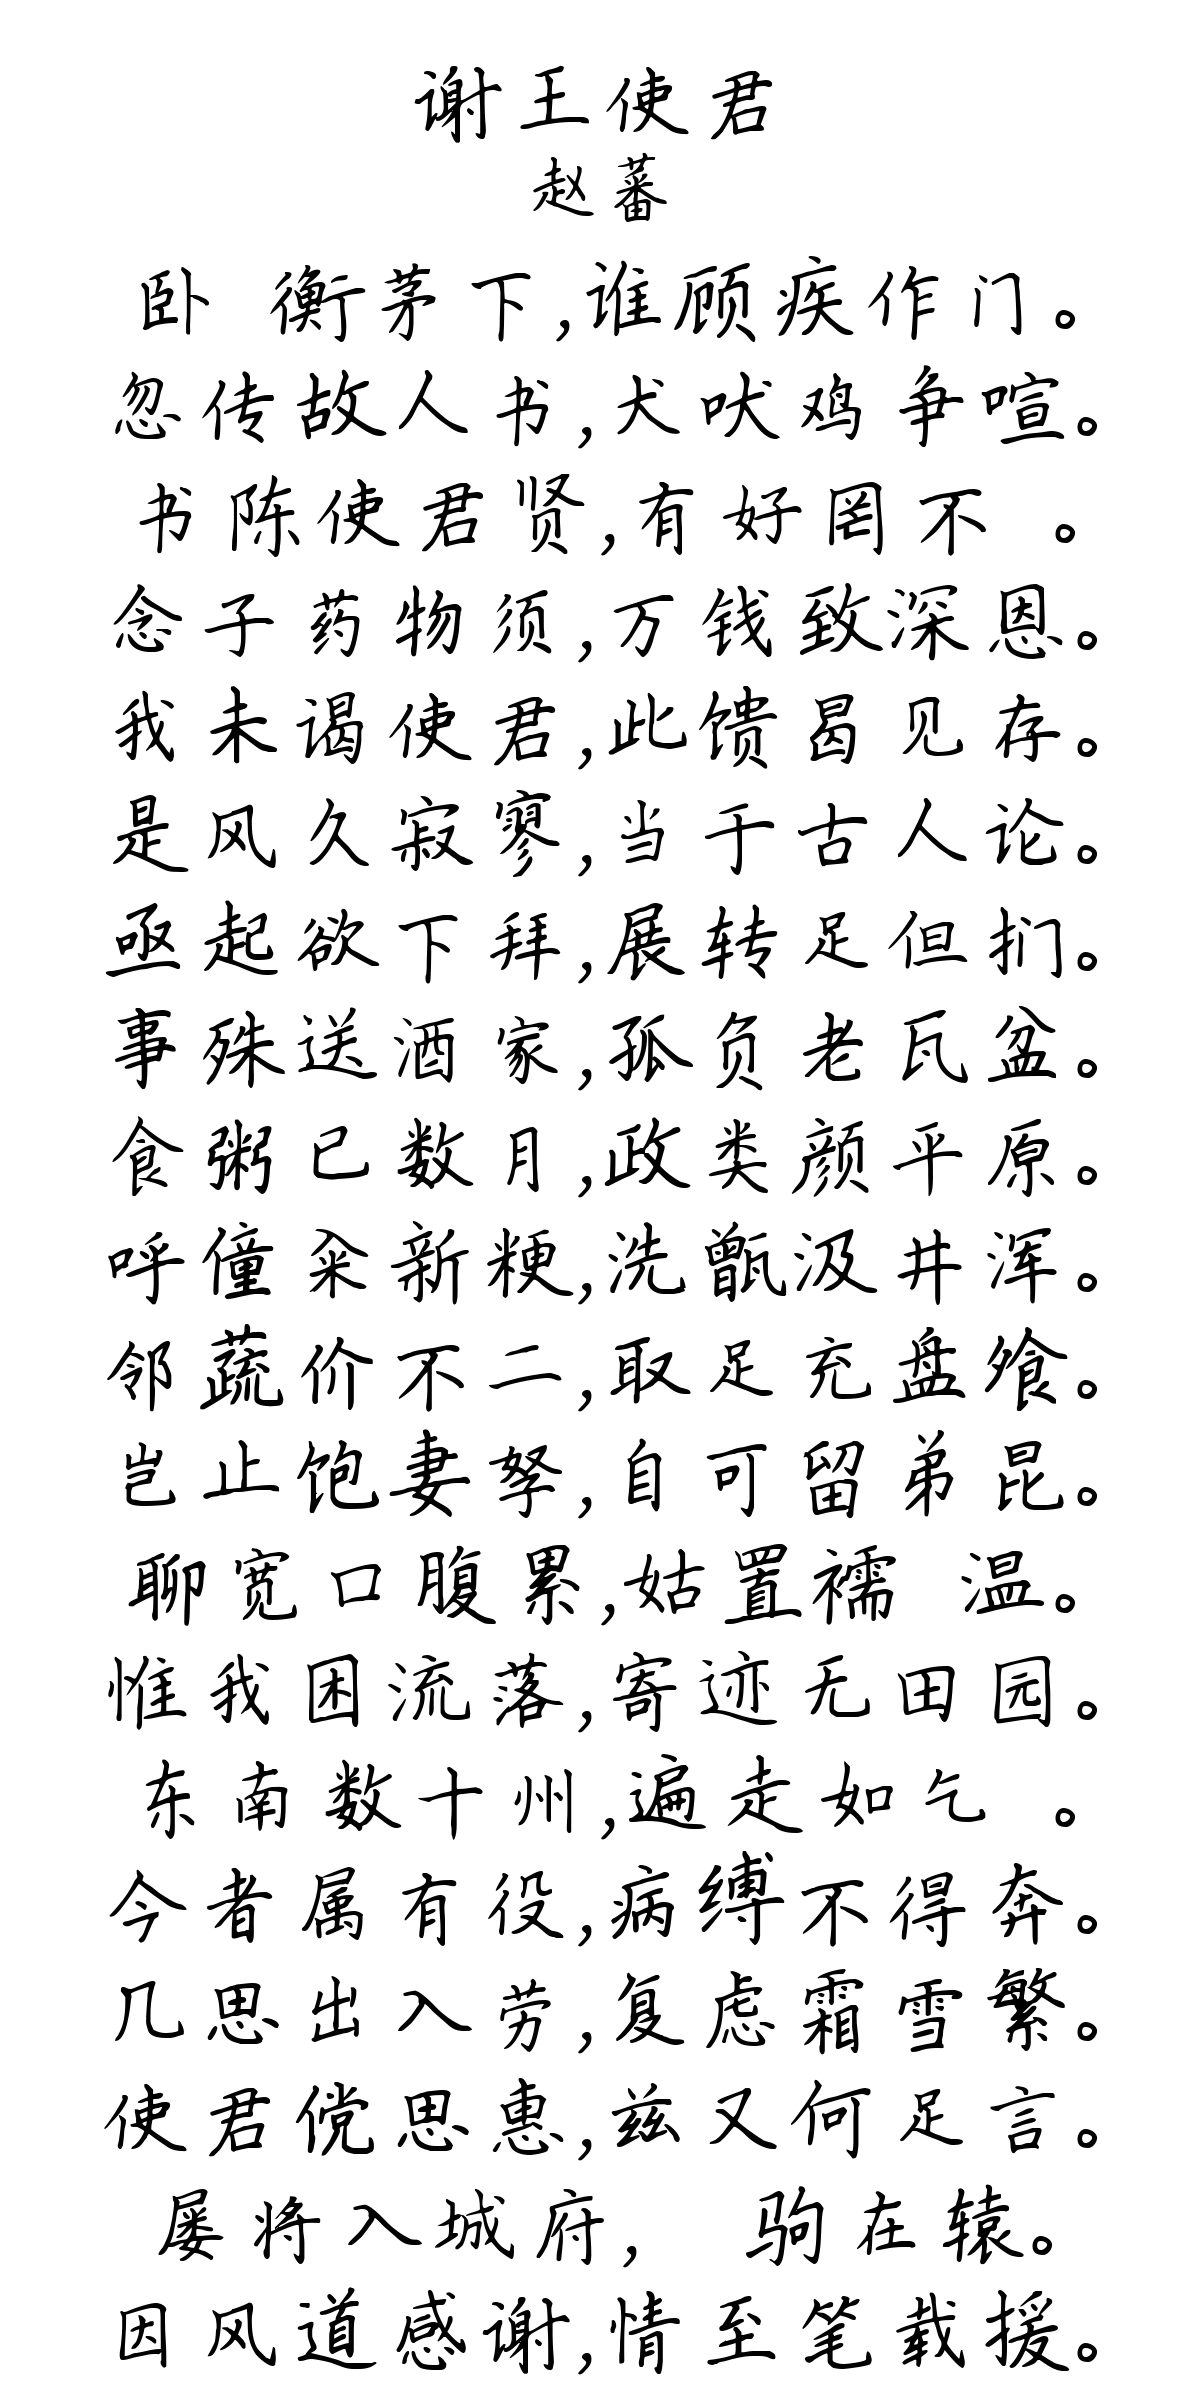 谢王使君
赵蕃
卧 衡茅下,谁顾疾作门。
忽传故人书,犬吠鸡争喧。
书陈使君贤,有好罔不 。
念子药物须,万钱致深恩。
我未谒使君,此馈曷见存。
是风久寂寥,当于古人论。
亟起欲下拜,展转足但扪。
事殊送酒家,孤负老瓦盆。
食粥已数月,政类颜平原。
呼僮籴新粳,洗甑汲井浑。
邻蔬价不二,取足充盘飧。
岂止饱妻孥,自可留弟昆。
聊宽口腹累,姑置襦 温。
惟我困流落,寄迹无田园。
东南数十州,遍走如乞 。
今者属有役,病缚不得奔。
几思出入劳,复虑霜雪繁。
使君傥思惠,兹又何足言。
屡将入城府, 驹在辕。
因风道感谢,情至笔载援。